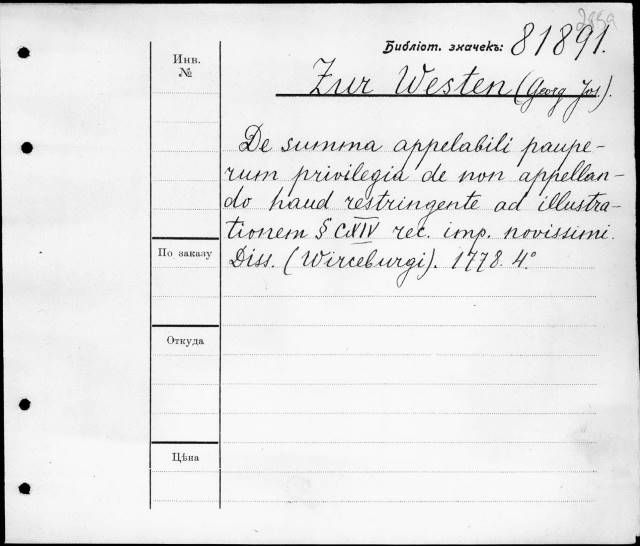 Библіот. значекъ: 81891.
Инв.
№
Zur Westen (Georg Jos.).
De summa appelabili paupe-
rum privilegia de non appellan-
do haud restringente ad illustra-
tionem § CXIV rec. imp. novissimi.
Diss. (Wirceburgi). 1778. 4°
По заказу
Откуда
Цѣна